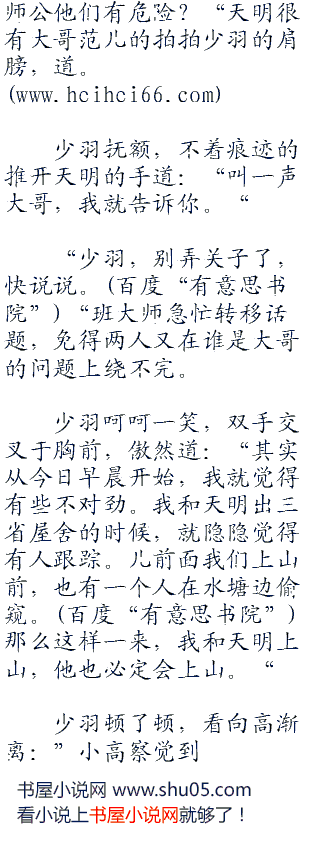 师公他们有危险？“天明很
有大哥范儿的拍拍少羽的肩
膀，道。
(www.hcihci66.com)
少羽抚额，不着痕迹的
推开天明的手道：“叫一声
大哥，我就告诉你。“
“少羽，别弄关子了，
快说说。(百度“有意思书
院”)“班大师急忙转移话
题，免得两人又在谁是大哥
的问题上绕不完。
少羽呵呵一笑，双手交
叉于胸前，傲然道：“其实
从今日早晨开始，我就觉得
有些不对劲。我和天明出三
省屋舍的时候，就隐隐觉得
有人跟踪。儿前面我们上山
前，也有一个人在水塘边偷
窥。(百度“有意思书院”)
那么这样一来，我和天明上
山，他也必定会上山。“
少羽顿了顿，看向高渐
离：”小高察觉到
书屋小说网 www.shu05.com
看小说上书屋小说网就够了！